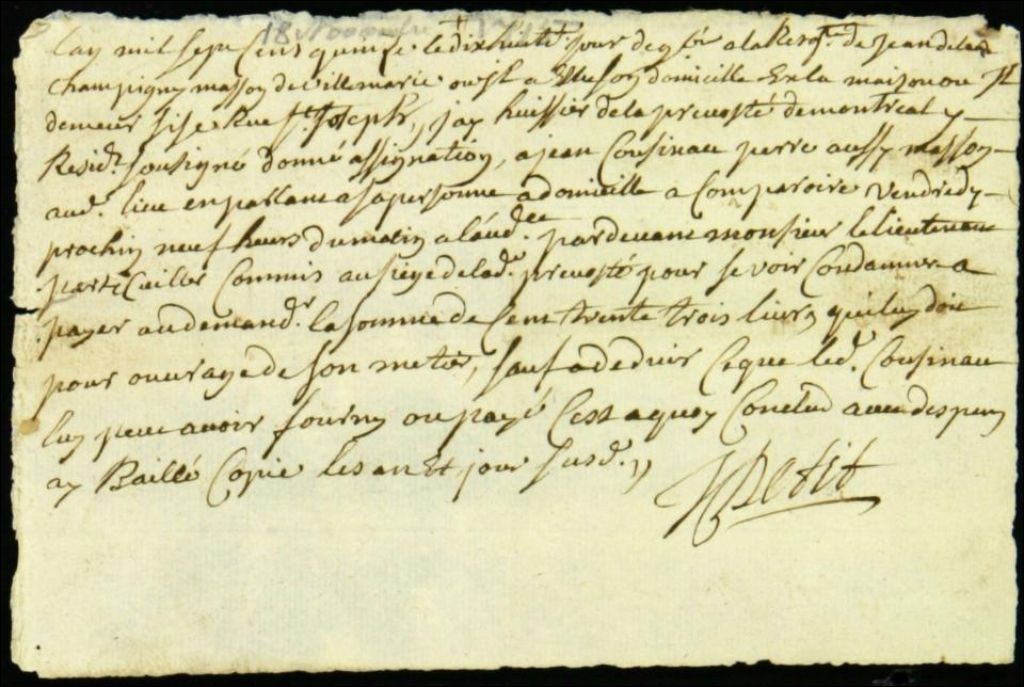 18 Novembre 1715
Lan mil sept Cens quinze le dix huitt.e jour de 9bre a la Requ.te de Jean dela
Champigny masson de villemarie ou il a Elleu son domicille En la maison ou Il
demeur sise Rue St. Joseph,, jay huissier de la prevosté de montreal y
Resid.t sousigné donné assignation, a jean Cousinau perre aussy masson
aud. lieu en parlant a sa personne a domicille a Comparoire vendredy
prochin neuf heurs du matin a laud.ce pardevant monsieur le lieutenant
particullier Commis au siege de lad. prevosté pour se voir Condamner a
payer au demand.r la somme de Cent trente trois livres quil luy doit
pour ouvrage de son metié, sauf a deduir Ce que led. Cousinau
luy peut avoir fourny ou payé Cest a quoy Conclud avec despens
ay Baillé Copie les an Et jour susd. ,,
Petit